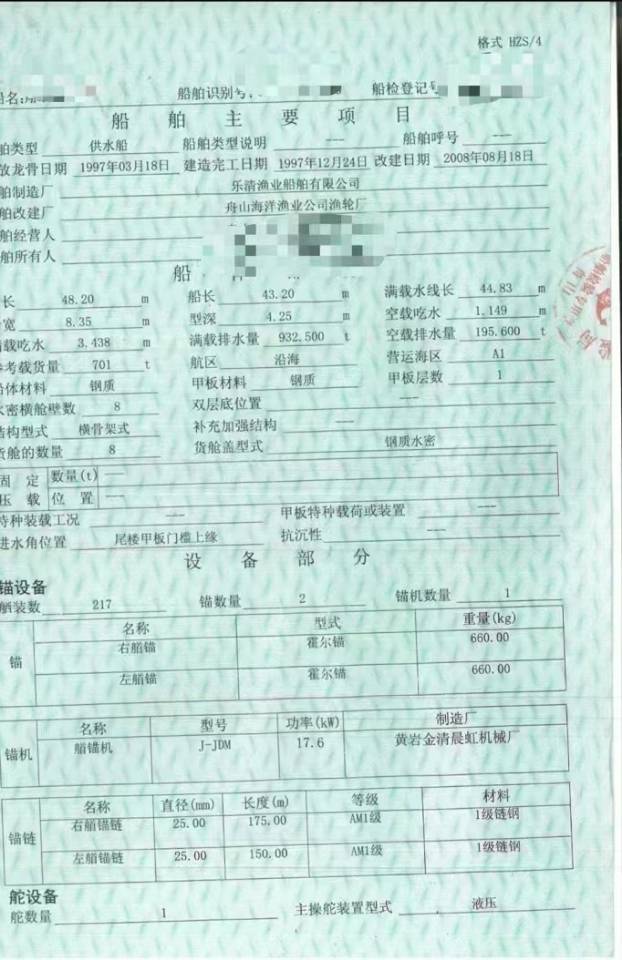 格式 HZS/4
船名: 船舶识别号: 船检登记号
船舶主要项目
舶类型 供水船 船舶类型说明 --- 船舶呼号 ---
放龙骨日期 1997年03月18日 建造完工日期 1997年12月24日 改建日期 2008年08月18日
舶制造厂 乐清渔业船舶有限公司
舶改建厂 舟山海洋渔业公司渔轮厂
舶经营人
舶所有人
船
长 48.20 m 船长 43.20 m 满载水线长 44.83 m
宽 8.35 m 型深 4.25 m 空载吃水 1.149 m
载吃水 3.438 m 满载排水量 932.500 t 空载排水量 195.600 t
参考载货量 701 t 航区 沿海 营运海区 A1
船体材料 钢质 甲板材料 钢质 甲板层数 1
水密横舱壁数 8 双层底位置 ---
结构型式 横骨架式 补充加强结构 ---
货舱的数量 8 货舱盖型式 钢质水密
固定 数量(t) ---
压载 位置 ---
特种装载工况 --- 甲板特种载荷或装置 ---
进水角位置 尾楼甲板门槛上缘 抗沉性 ---
设备部分
锚设备
舾装数 217 锚数量 2 锚机数量 1
锚 名称 型式 重量(kg)
右艏锚 霍尔锚 660.00
左艏锚 霍尔锚 660.00
锚机 名称 型号 功率(kW) 制造厂
艏锚机 J-JDM 17.6 黄岩金清晨虹机械厂
锚链 名称 直径(mm) 长度(m) 等级 材料
右艏锚链 25.00 175.00 AM1级 1级链钢
左艏锚链 25.00 150.00 AM1级 1级链钢
舵设备
舵数量 1 主操舵装置型式 液压